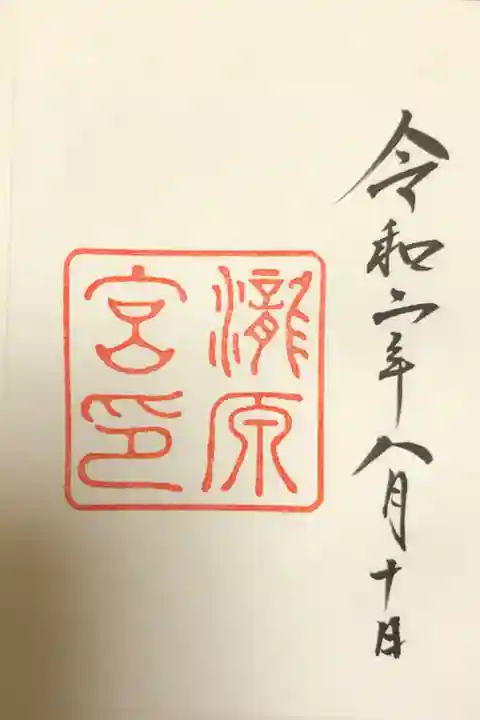 令和二年八月十日
瀧原
宮印